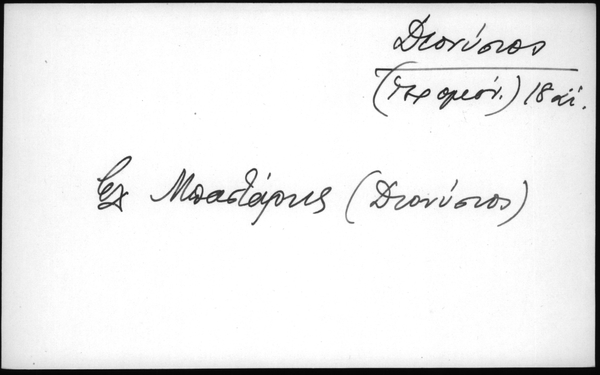 Διονύσιος
(Ἱερομον.) 18 αἰ.
Μπαστάρης (Διονύσιος)